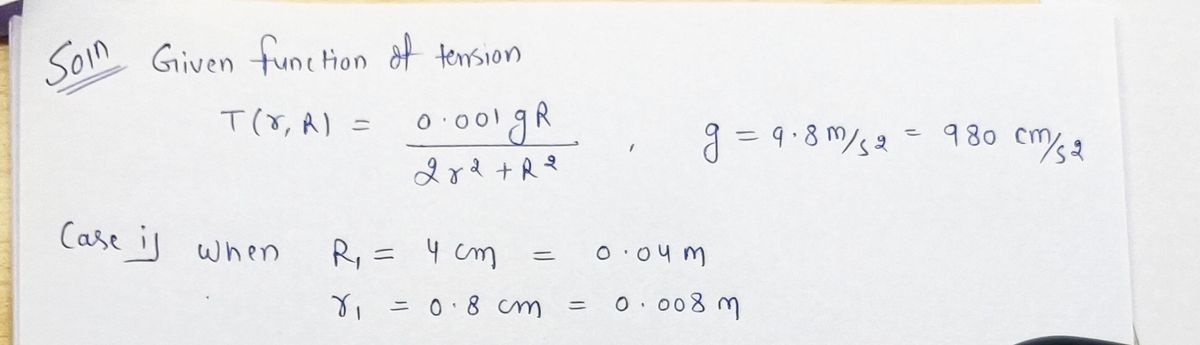 Soln Given function of tension
T(r, R) = 0.001gR / 2r2 + R2 , g = 9.8 m/s2 = 980 cm/s2
Case i) when R1 = 4 cm = 0.04 m
r1 = 0.8 cm = 0.008 m